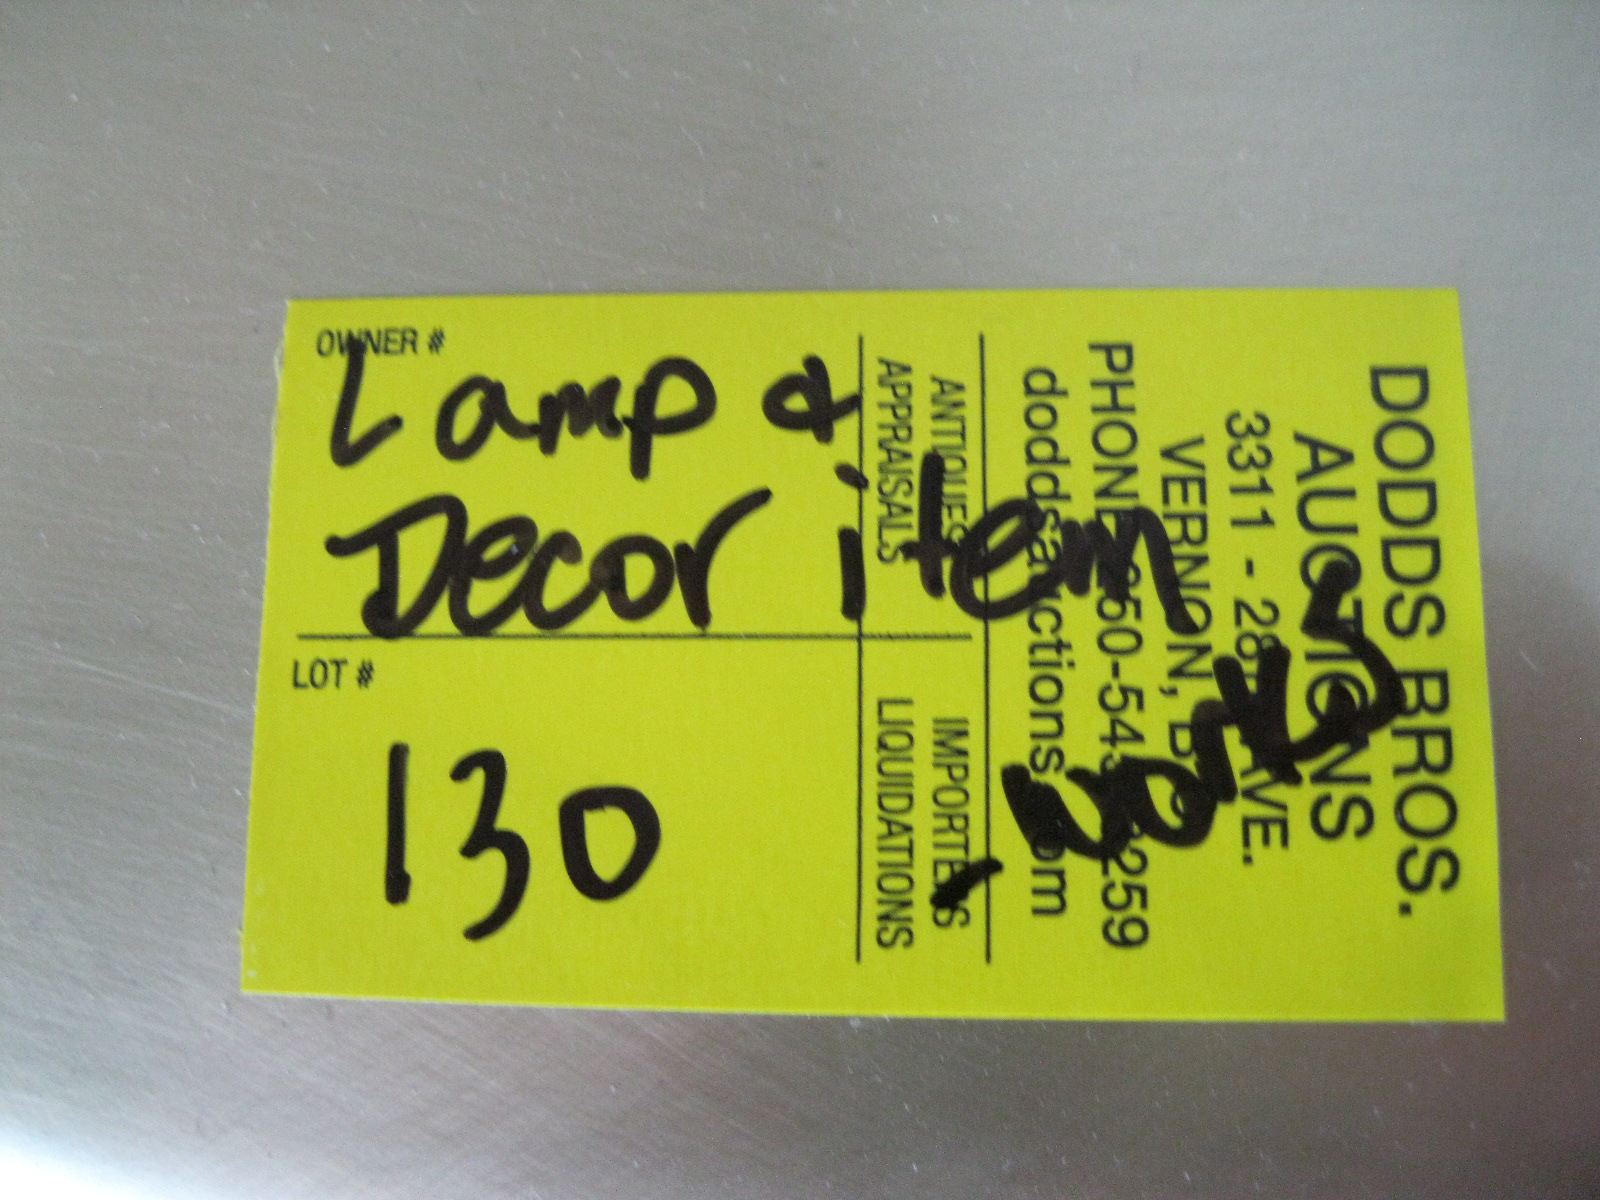 OWNER #
Lamp &
Decor item
LOT #
130
ANTIQUES
APPRAISALS
IMPORTERS
LIQUIDATIONS
DODDS BROS.
AUCTIONS
3311 - 28 AVE.
VERNON,
PHONE 259
doddsauctions.com
works